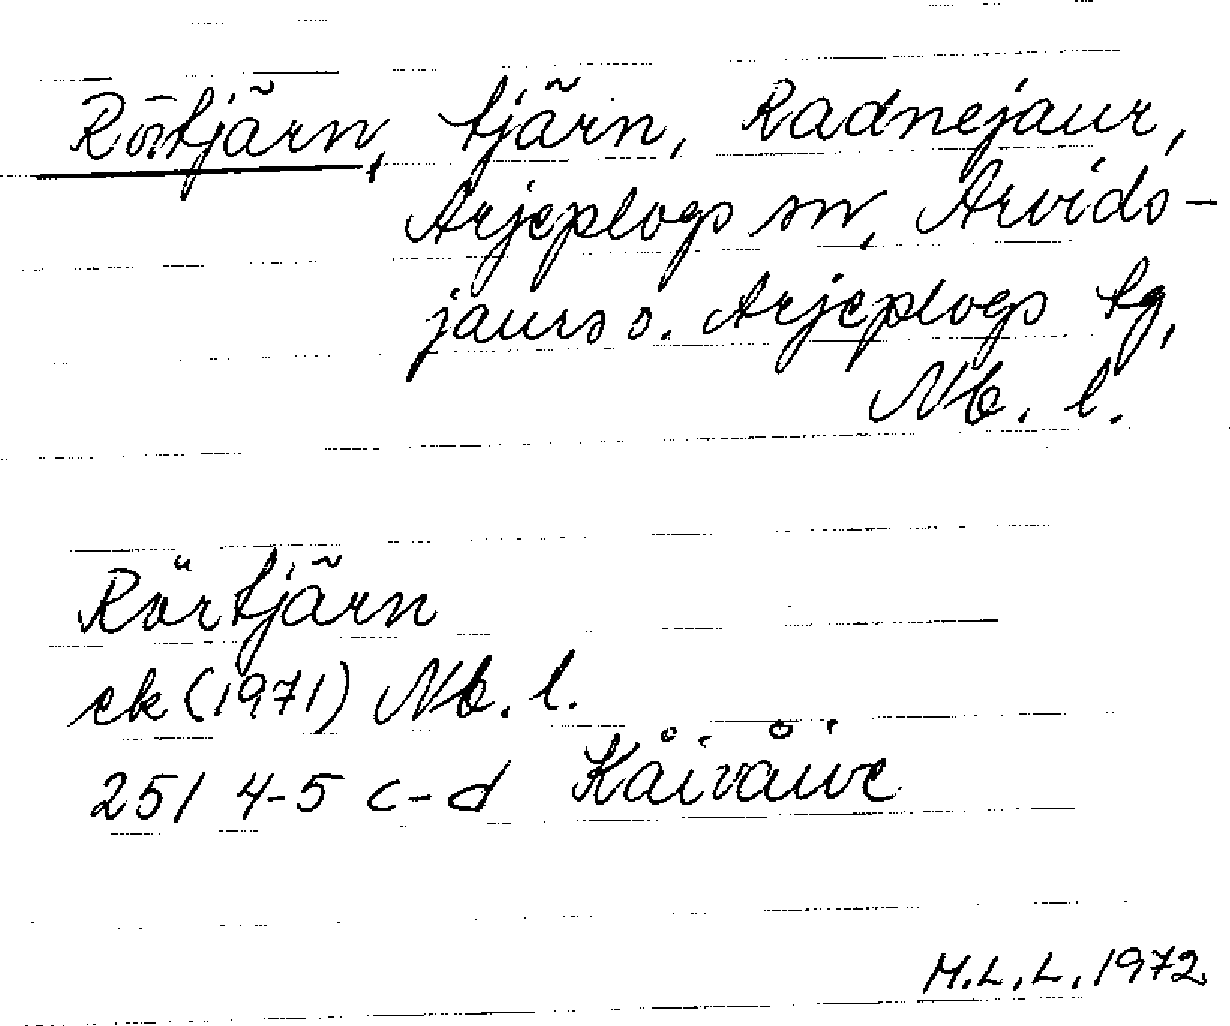 Rörtjärn, tjärn, Radnejaur,
Arjeplogs sn, Arvids-
jaurs o. Arjeplogs tg,
Nb. l.
Rörtjärn
ek (1971) Nb. l.
25I 4-5 c-d Kåivåive
M.L.L. 1972